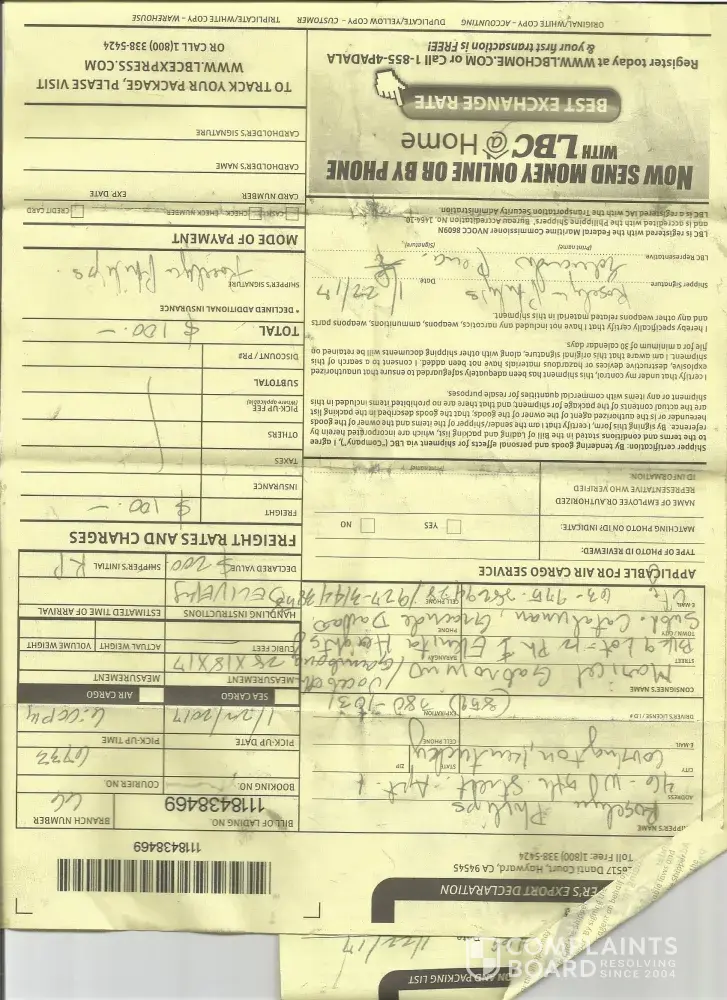 ON AND PACKING LIST
1/22/17
ER'S EXPORT DECLARATION
26517 Danti Court, Hayward, CA 94545
Toll Free: (800) 338-5424
1118438469
BILL OF LADING NO.
1118438469
BRANCH NUMBER
BOOKING NO.
COURIER NO.
6732
PICK-UP DATE
1/22/2017
PICK-UP TIME
SEA CARGO
AIR CARGO
MEASUREMENT
28 X 18 X 17
MEASUREMENT
CUBIC FEET
ACTUAL WEIGHT
VOLUME WEIGHT
HANDLING INSTRUCTIONS
DELIVERY
ESTIMATED TIME OF ARRIVAL
DECLARED VALUE
$ 200
SHIPPER'S INITIAL
RP
SHIPPER'S NAME
Roselyn Philips
ADDRESS
Street - Apt. 1
CITY
STATE
ZIP
Covington, Kentucky
E-MAIL
CELL PHONE
DRIVER'S LICENSE / ID #
EXPIRATION
(859) 380-1031
CONSIGNEE'S NAME
Maricel
STREET
BARANGAY
Heights
TOWN / CITY
PHONE
Subd. Catalunan, Grande Davao
E-MAIL
CELL PHONE
APPLICABLE FOR AIR CARGO SERVICE
TYPE OF PHOTO ID REVIEWED:
MATCHING PHOTO ON ID! INDICATE:
YES
NO
NAME OF EMPLOYEE OR AUTHORIZED
REPRESENTATIVE WHO VERIFIED
ID INFORMATION
(Printed name)
Shipper certification: By tendering goods and personal effects for shipment via LBC ("Company"), I agree
to the terms and conditions stated in the Bill of Lading and packing list, which are incorporated herein by
reference. By signing this form, I certify that I am the sender/shipper of the items and the owner of the goods
hereunder or is the authorized agent of the owner of the goods, that the goods described in the packing list
are the actual contents of the package for shipment; and that there are no prohibited items included in this
shipment or any items with commercial quantities for resale purposes.
I certify that under my control, this shipment has been adequately safeguarded to ensure that unauthorized
explosive, destructive devices or hazardous materials have not been added. I consent to a search of this
shipment. I am aware that this original signature, along with other shipping documents will be retained on
file for a minimum of 30 calendar days
I hereby specifically certify that I have not included any narcotics, weapons, ammunitions, weapons parts
and any other weapons related material in this shipment.
Roselyn Philips
1/22/17
Shipper Signature
Date
LBC Representative
(Print name)
(Signature)
LBC is registered with the Federal Maritime Commissioner NVOCC 8609N
and is accredited with the Philippine Shippers' Bureau Accreditation No.
LBC is a registered IAC with the Transportation Security Administration
FREIGHT RATES AND CHARGES
FREIGHT
$ 100.—
INSURANCE
TAXES
OTHERS
PICK-UP FEE
(where applicable)
SUBTOTAL
DISCOUNT / PR#
TOTAL
$ 100.—
* DECLARED ADDITIONAL INSURANCE
SHIPPER'S SIGNATURE
Roselyn Philips
MODE OF PAYMENT
CASH
CHECK - CHECK NUMBER
CREDIT CARD
CARD NUMBER
EXP. DATE
CARDHOLDER'S NAME
CARDHOLDER'S SIGNATURE
NOW SEND MONEY ONLINE OR BY PHONE
WITH LBC @ Home
BEST EXCHANGE RATE
Register today at WWW.LBCHOME.COM or Call 1-855-4PADALA
& your first transaction is FREE!
TO TRACK YOUR PACKAGE, PLEASE VISIT
WWW.LBCEXPRESS.COM
OR CALL 1(800) 338-5424
ORIGINAL/WHITE COPY - ACCOUNTING
DUPLICATE/YELLOW COPY - CUSTOMER
TRIPLICATE/WHITE COPY - WAREHOUSE
COMPLAINTS
BOARD
RESOLVING
SINCE 2004